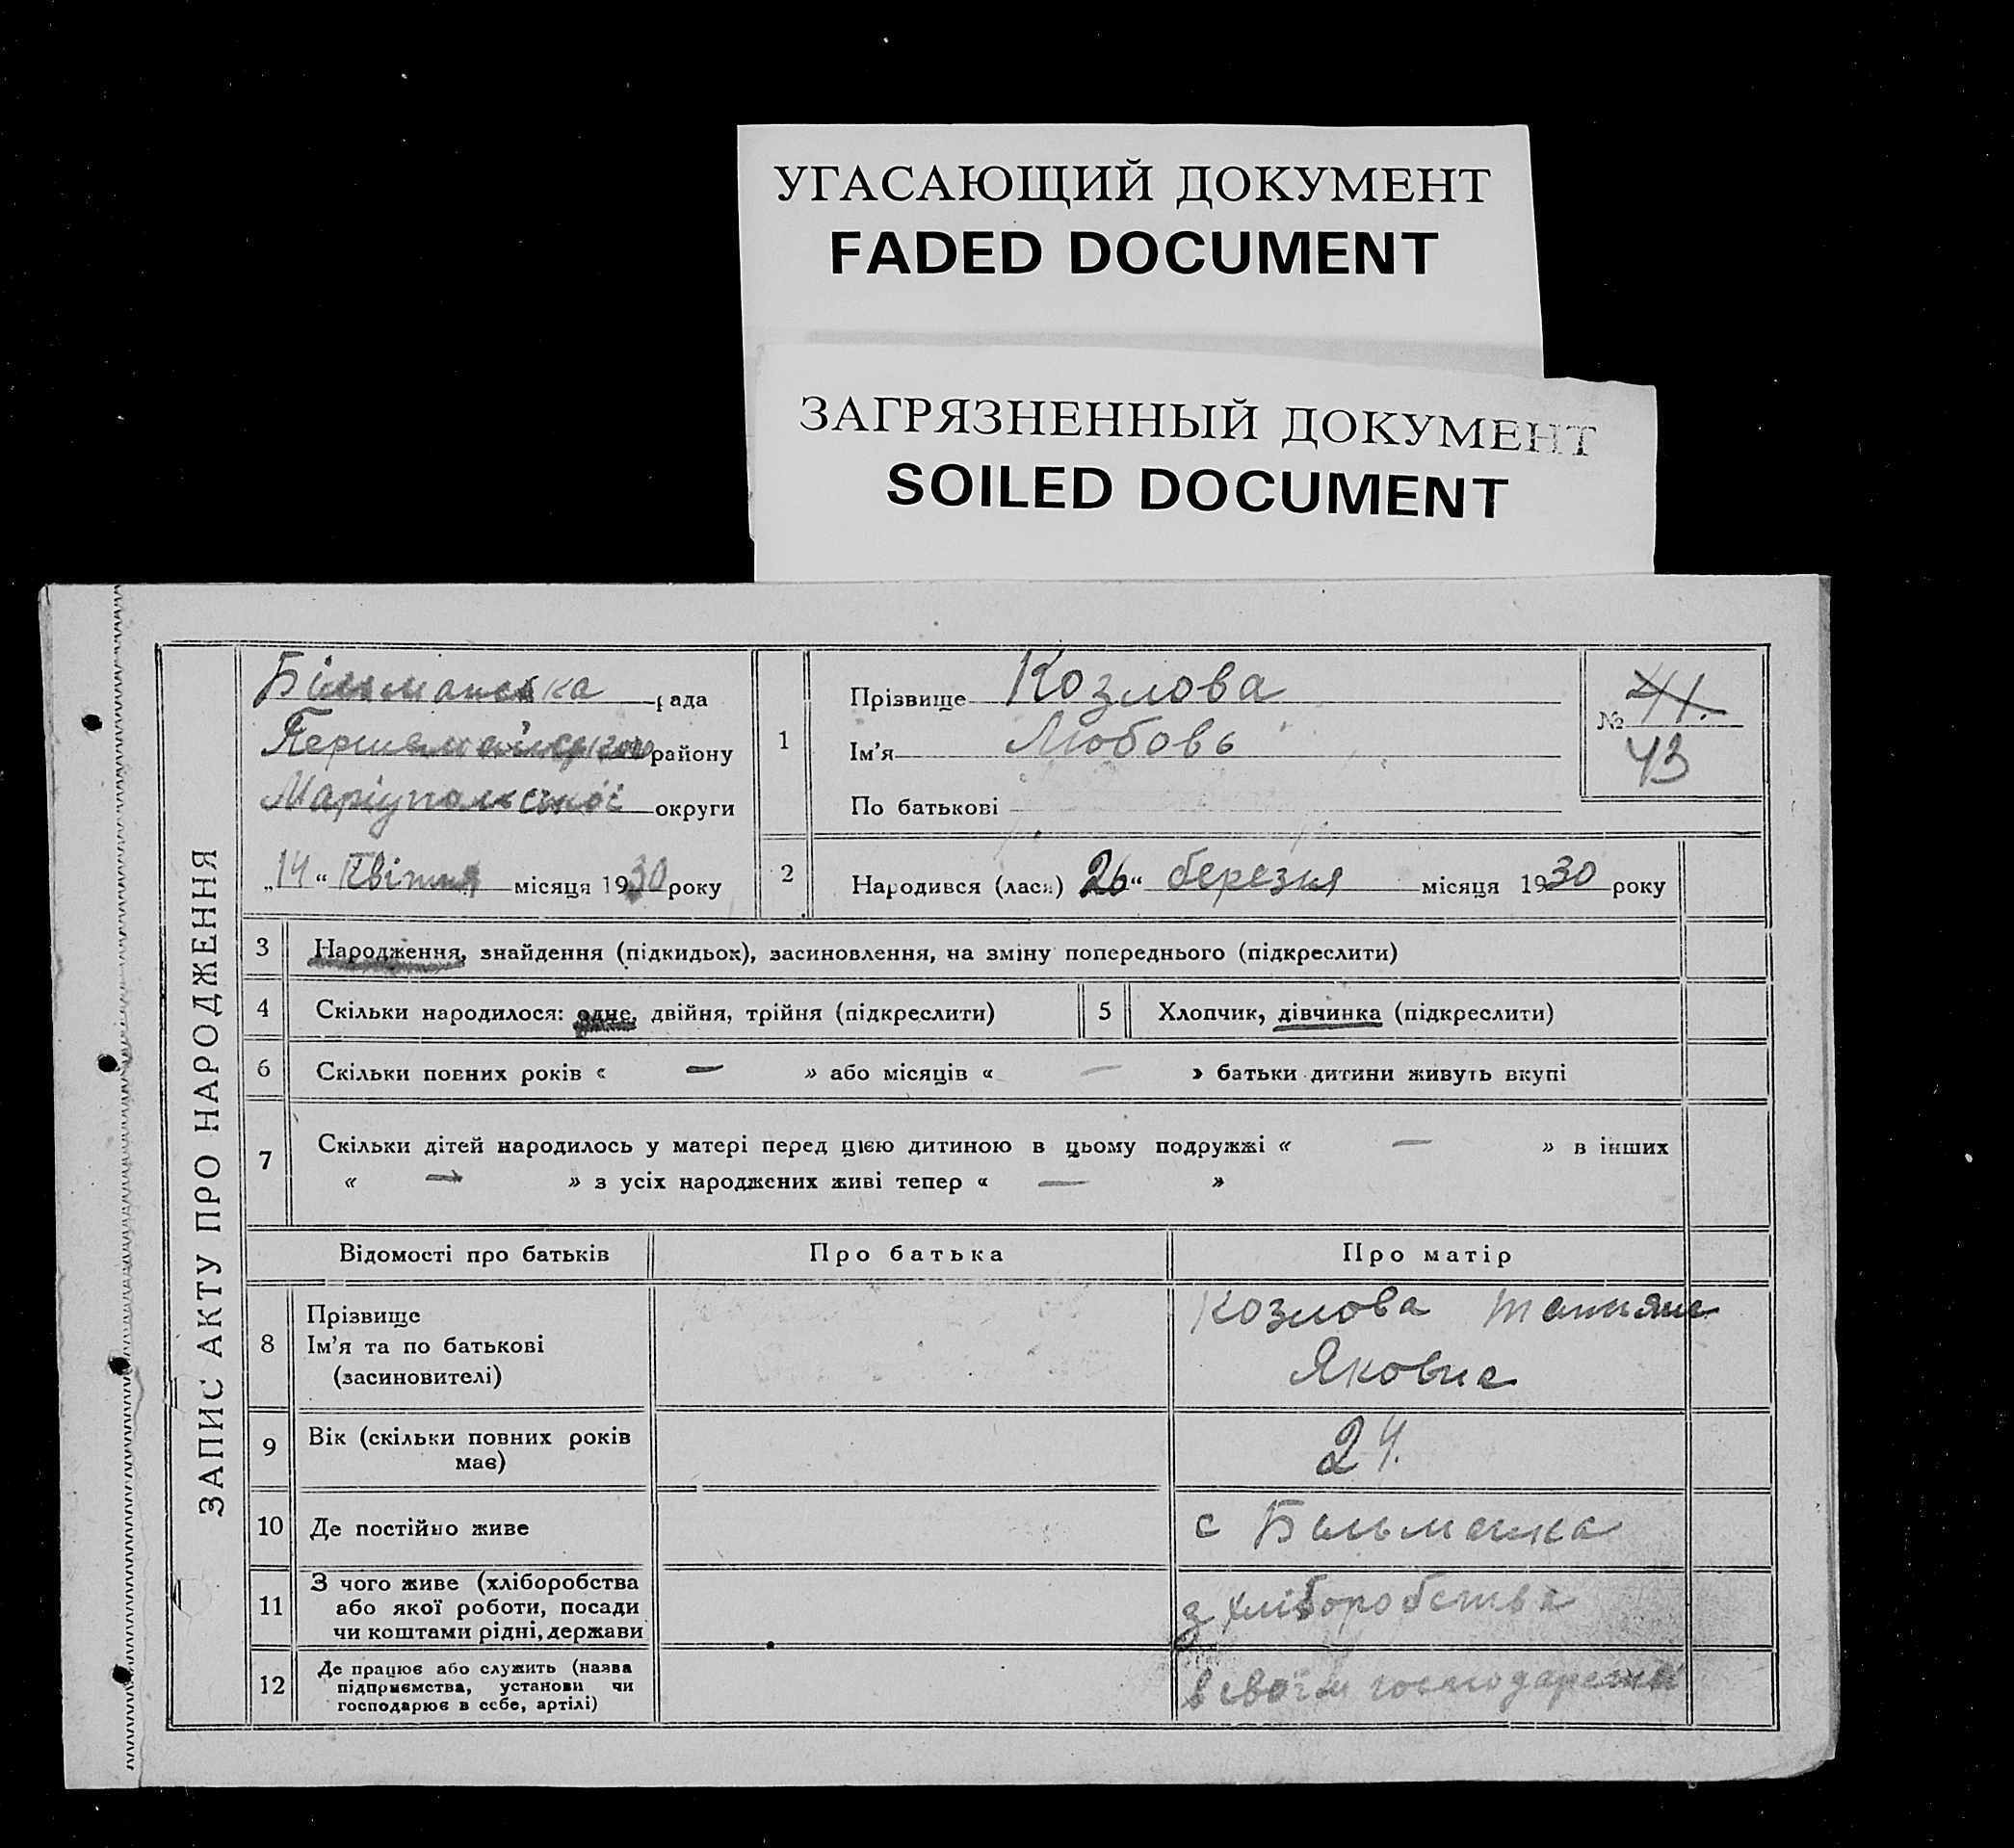 УГАСАЮЩИЙ ДОКУМЕНТ
FADED DOCUMENT
ЗАГРЯЗНЕННЫЙ ДОКУМЕНТ
SOILED DOCUMENT
ЗАПИС АКТУ ПРО НАРОДЖЕННЯ
Більманська рада
району
Маріупольської округи
„14“ Квітня місяця 1930 року
1
Прізвище Козлова
Ім'я Любовь
По батькові
№ 41.
43
2
Народився (лася) 26“ березня місяця 1930 року
3 Народження, знайдення (підкидьок), засиновлення, на зміну попереднього (підкреслити)
4 Скільки народилося: одне, двійня, трійня (підкреслити) 5 Хлопчик, дівчинка (підкреслити)
6 Скільки повних років « — » або місяців « — » батьки дитини живуть вкупі
7 Скільки дітей народилось у матері перед цією дитиною в цьому подружжі « — » в інших
« — » з усіх народжених живі тепер « — »
Відомості про батьків Про батька Про матір
8 Прізвище
Ім'я та по батькові
(засиновителі)
Козлова Татьяна
Яковна
9 Вік (скільки повних років
має)
24.
10 Де постійно живе
с Більманка
11 З чого живе (хліборобства
або якої роботи, посади
чи коштами рідні, держави
з хліборобства
12 Де працює або служить (назва
підприємства, установи чи
господарює в себе, артілі)
в своїм